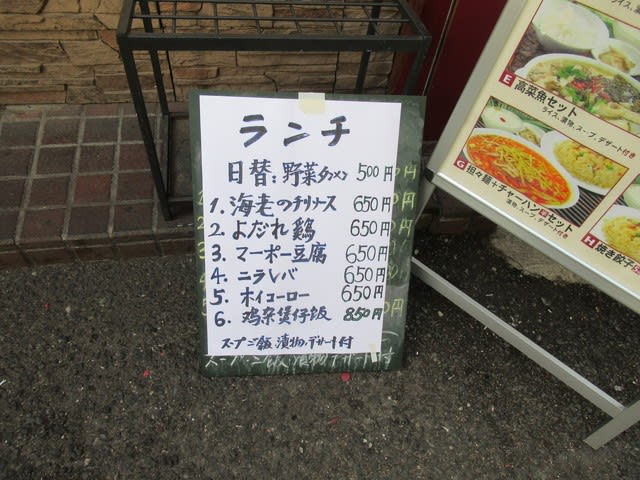 ランチ
日替:野菜タンメン 500円
1. 海老のチリソース 650円
2. よだれ鶏 650円
3. マーボー豆腐 650円
4. ニラレバ 650円
5. ホイコーロー 650円
6. 鸡杂煲仔饭 850円
スープご飯漬物、デザート付
E 高菜魚セット
ライス、漬物、スープ、デザート付き
G 担々麺+チャーハンセット
漬物・スープ、デザート付き
H 焼き餃子